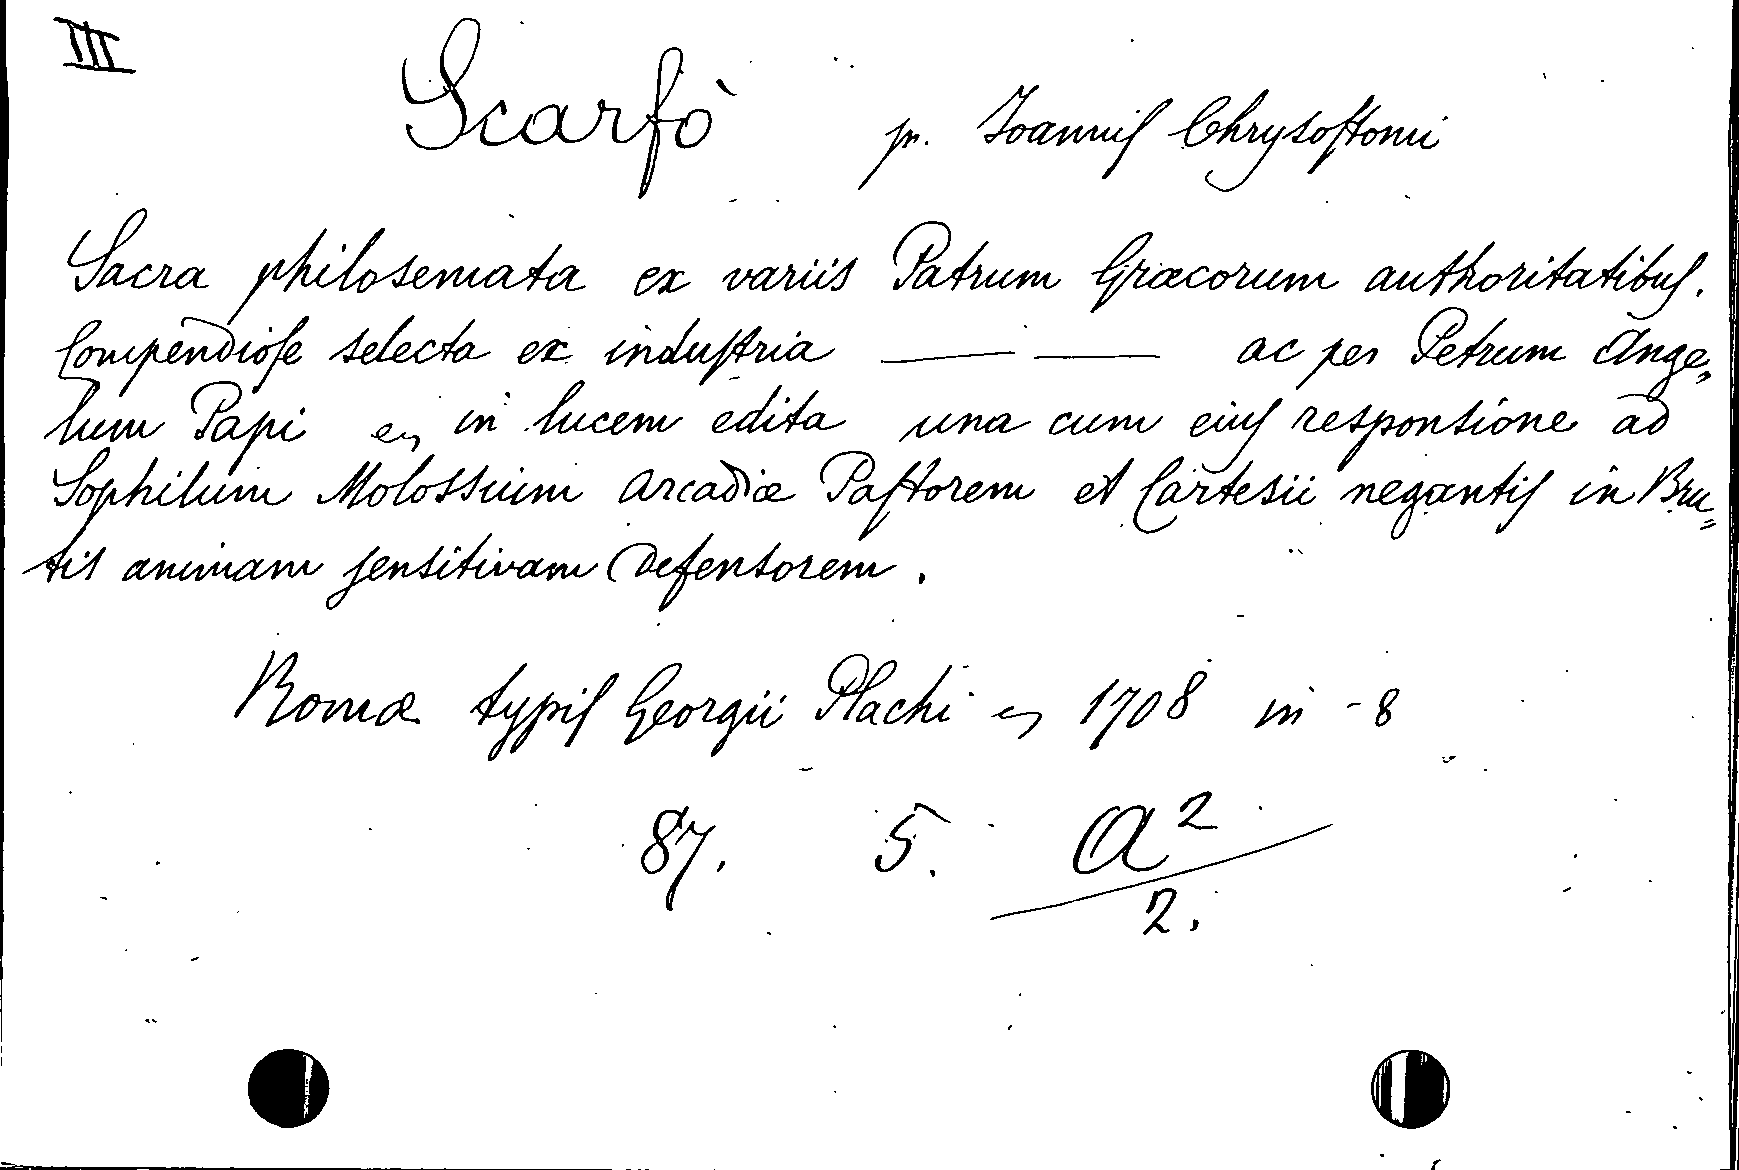 III
Scarfò p. Ioannis Chrysostomi
Sacra philosemata ex variis Patrum Græcorum authoritatibus.
Compendiose selecta ex industria —— —— ac per Petrum Ange„
lum Papi en in lucem edita una cum eius responsione ad
Sophilum Molossium Arcadiæ Pastorem et Cartesii negantis in Bru„
tis animam sensitivam Defensorem.
Romæ typis Georgii Plachi en 1708 in -8
87. 5. a²
2.